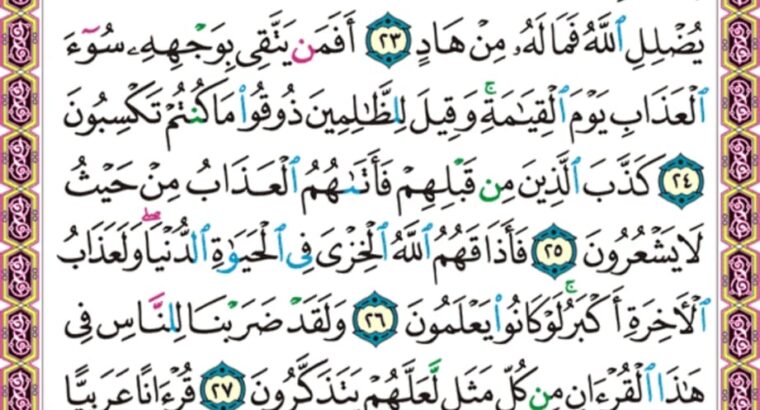 يُضْلِلِ ٱللَّهُ فَمَا لَهُۥ مِنْ هَادٍ ٢٣ أَفَمَن يَتَّقِى بِوَجْهِهِۦ سُوٓءَ
ٱلْعَذَابِ يَوْمَ ٱلْقِيَٰمَةِۚ وَقِيلَ لِلظَّٰلِمِينَ ذُوقُوا۟ مَا كُنتُمْ تَكْسِبُونَ
٢٤ كَذَّبَ ٱلَّذِينَ مِن قَبْلِهِمْ فَأَتَىٰهُمُ ٱلْعَذَابُ مِنْ حَيْثُ
لَا يَشْعُرُونَ ٢٥ فَأَذَاقَهُمُ ٱللَّهُ ٱلْخِزْىَ فِى ٱلْحَيَوٰةِ ٱلدُّنْيَاۖ وَلَعَذَابُ
ٱلْءَاخِرَةِ أَكْبَرُۚ لَوْ كَانُوا۟ يَعْلَمُونَ ٢٦ وَلَقَدْ ضَرَبْنَا لِلنَّاسِ فِى
هَٰذَا ٱلْقُرْءَانِ مِن كُلِّ مَثَلٍ لَّعَلَّهُمْ يَتَذَكَّرُونَ ٢٧ قُرْءَانًا عَرَبِيًّا